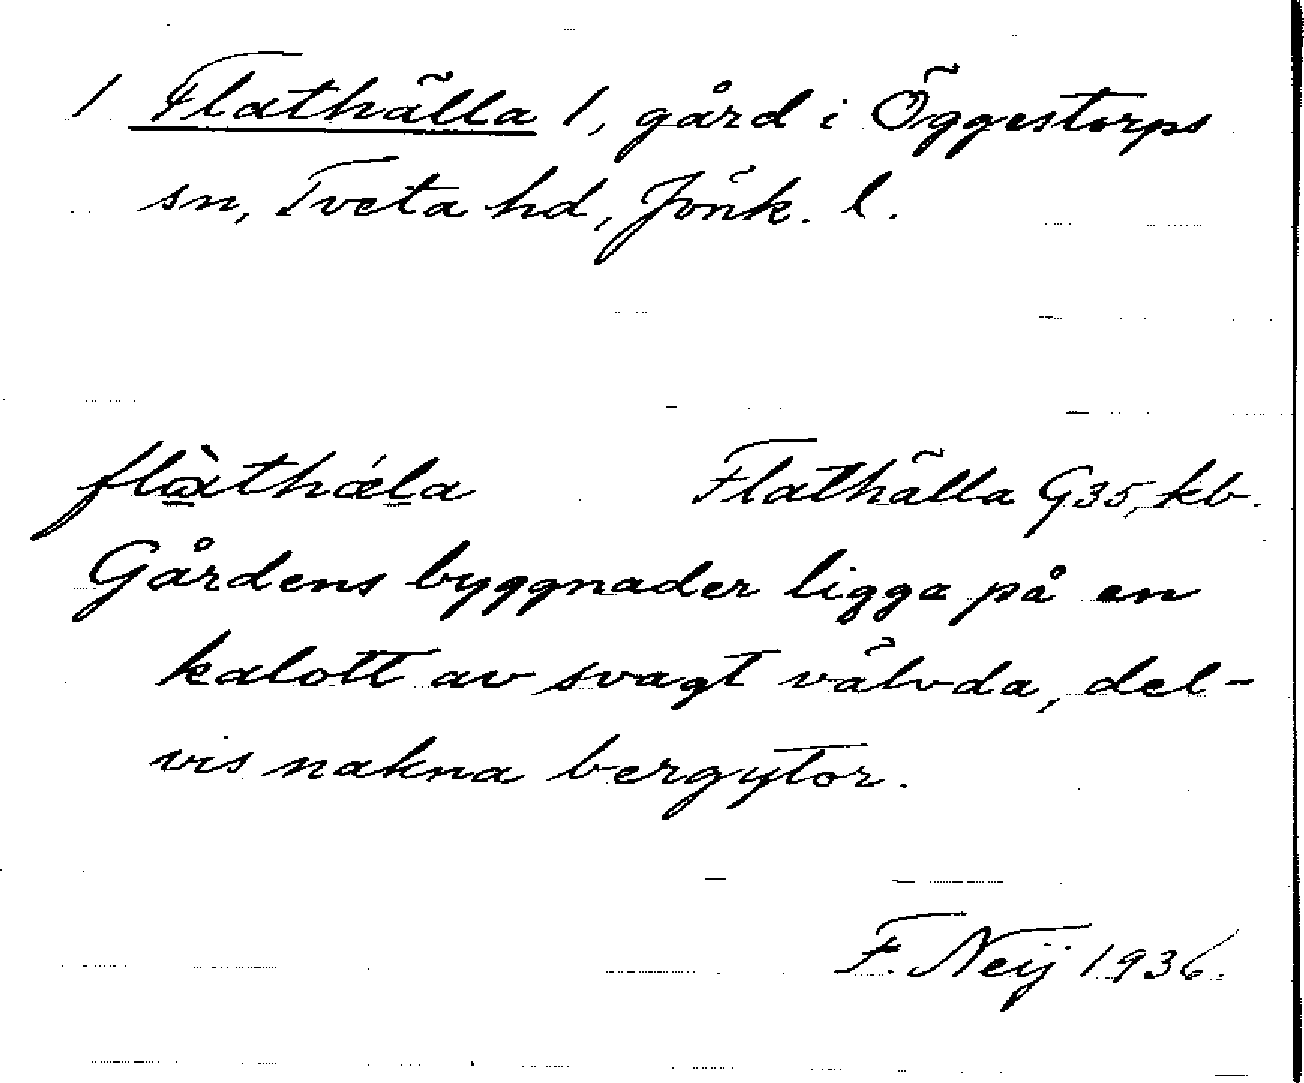 1 Flathälla 1, gård i Öggestorps
sn, Tveta hd, Jönk. l.
flàthǽla Flathälla G35, kb.
Gårdens byggnader ligga på en
kalott av svagt välvda, del-
vis nakna bergytor.
F. Neij 1936.